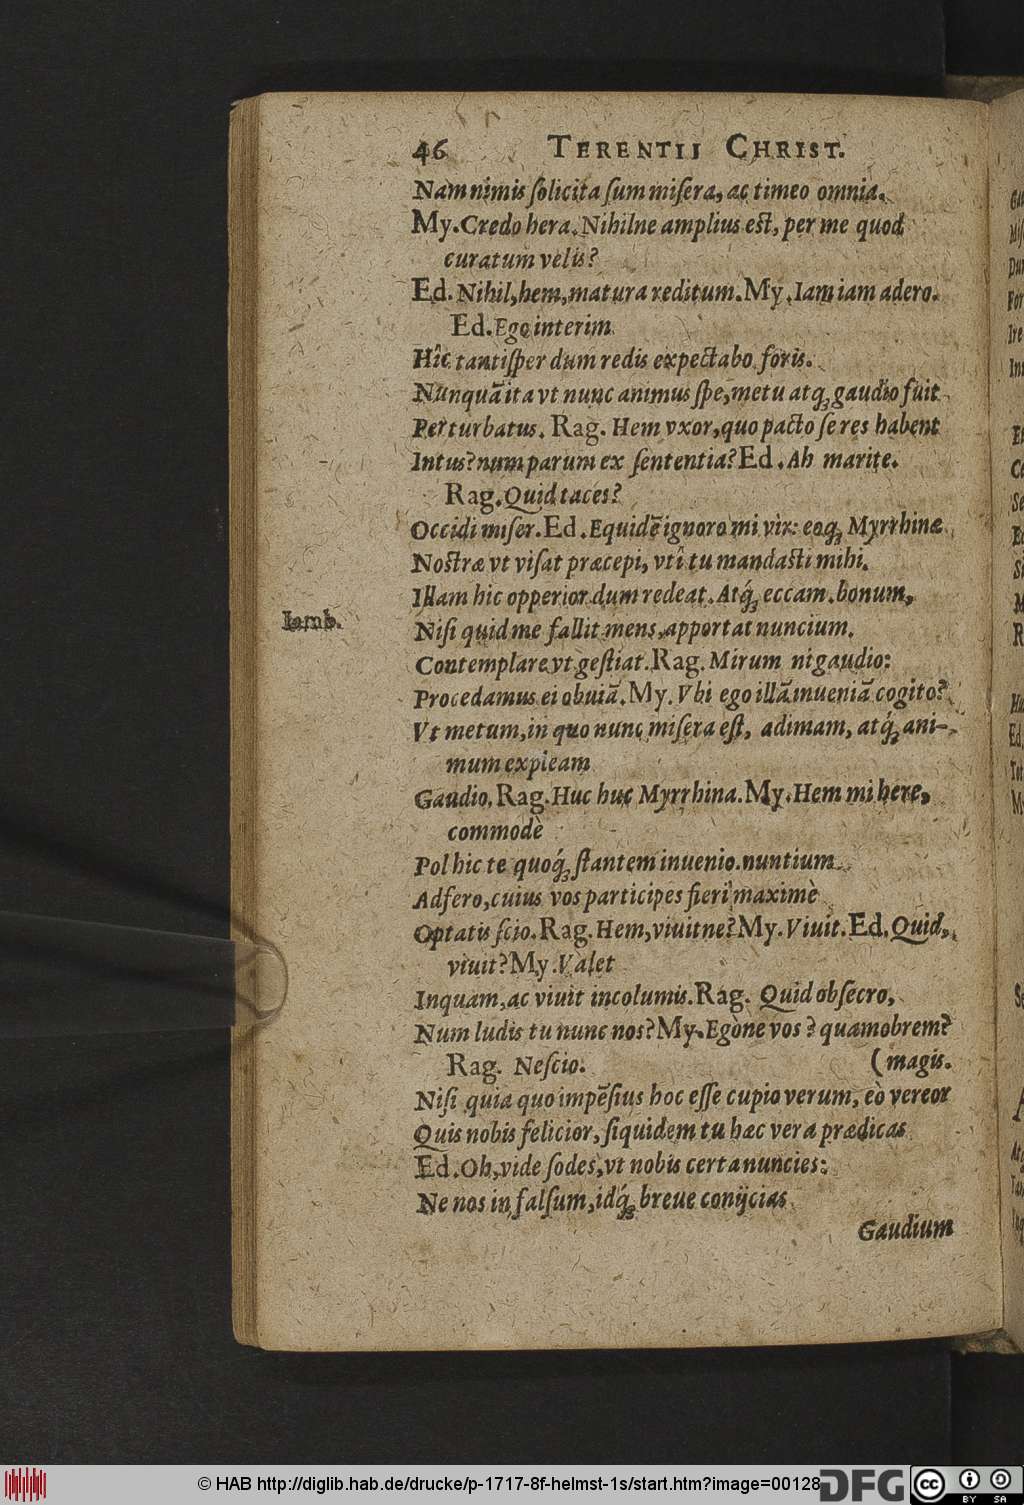 46 TERENTII CHRIST.
Nam nimis ſolicita ſum miſera, ac timeo omnia.
My. Credo hera. Nihilne amplius eſt, per me quod
curatum velis?
Ed. Nihil, hem, matura reditum. My. Iam iam adero.
Ed. Ego interim
Hîc tantiſper dum redis expectabo foris.
Nunquā ita vt nunc animus ſpe, metu atq; gaudio fuit
Perturbatus. Rag. Hem vxor, quo pacto ſe res habent
Intus? num parum ex ſententia? Ed. Ah marite.
Rag. Quid taces?
Occidi miſer. Ed. Equidē ignoro mi vir: eoq; Myrrhinæ
Noſtræ vt viſat præcepi, vti tu mandaſti mihi.
Illam hic opperior dum redeat. Atq́; eccam. bonum,
Iamb.
Niſi quid me fallit mens, apportat nuncium.
Contemplare vt geſtiat. Rag. Mirum ni gaudio:
Procedamus ei obuiā. My. Vbi ego illā inueniā cogito?
Vt metum, in quo nunc miſera eſt, adimam, atq́; ani-
mum expleam
Gaudio. Rag. Huc huc Myrrhina. My. Hem mi here,
commodè
Pol hic te quoq́; ſtantem inuenio. nuntium
Adfero, cuius vos participes fieri maximè
Optatis ſcio. Rag. Hem, viuitne? My. Viuit. Ed. Quid,
viuit? My. Valet
Inquam, ac viuit incolumis. Rag. Quid obſecro,
Num ludis tu nunc nos? My. Egòne vos? quamobrem?
Rag. Neſcio. (magis.
Niſi quia quo impēſius hoc eſſe cupio verum, eò vereor
Quis nobis felicior, ſiquidem tu hæc vera prædicas
Ed. Oh, vide ſodes, vt nobis certa nuncies:
Ne nos in falſum, idq́; breue conijcias
Gaudium
© HAB http://diglib.hab.de/drucke/p-1717-8f-helmst-1s/start.htm?image=00128
DFG
cc BY SA